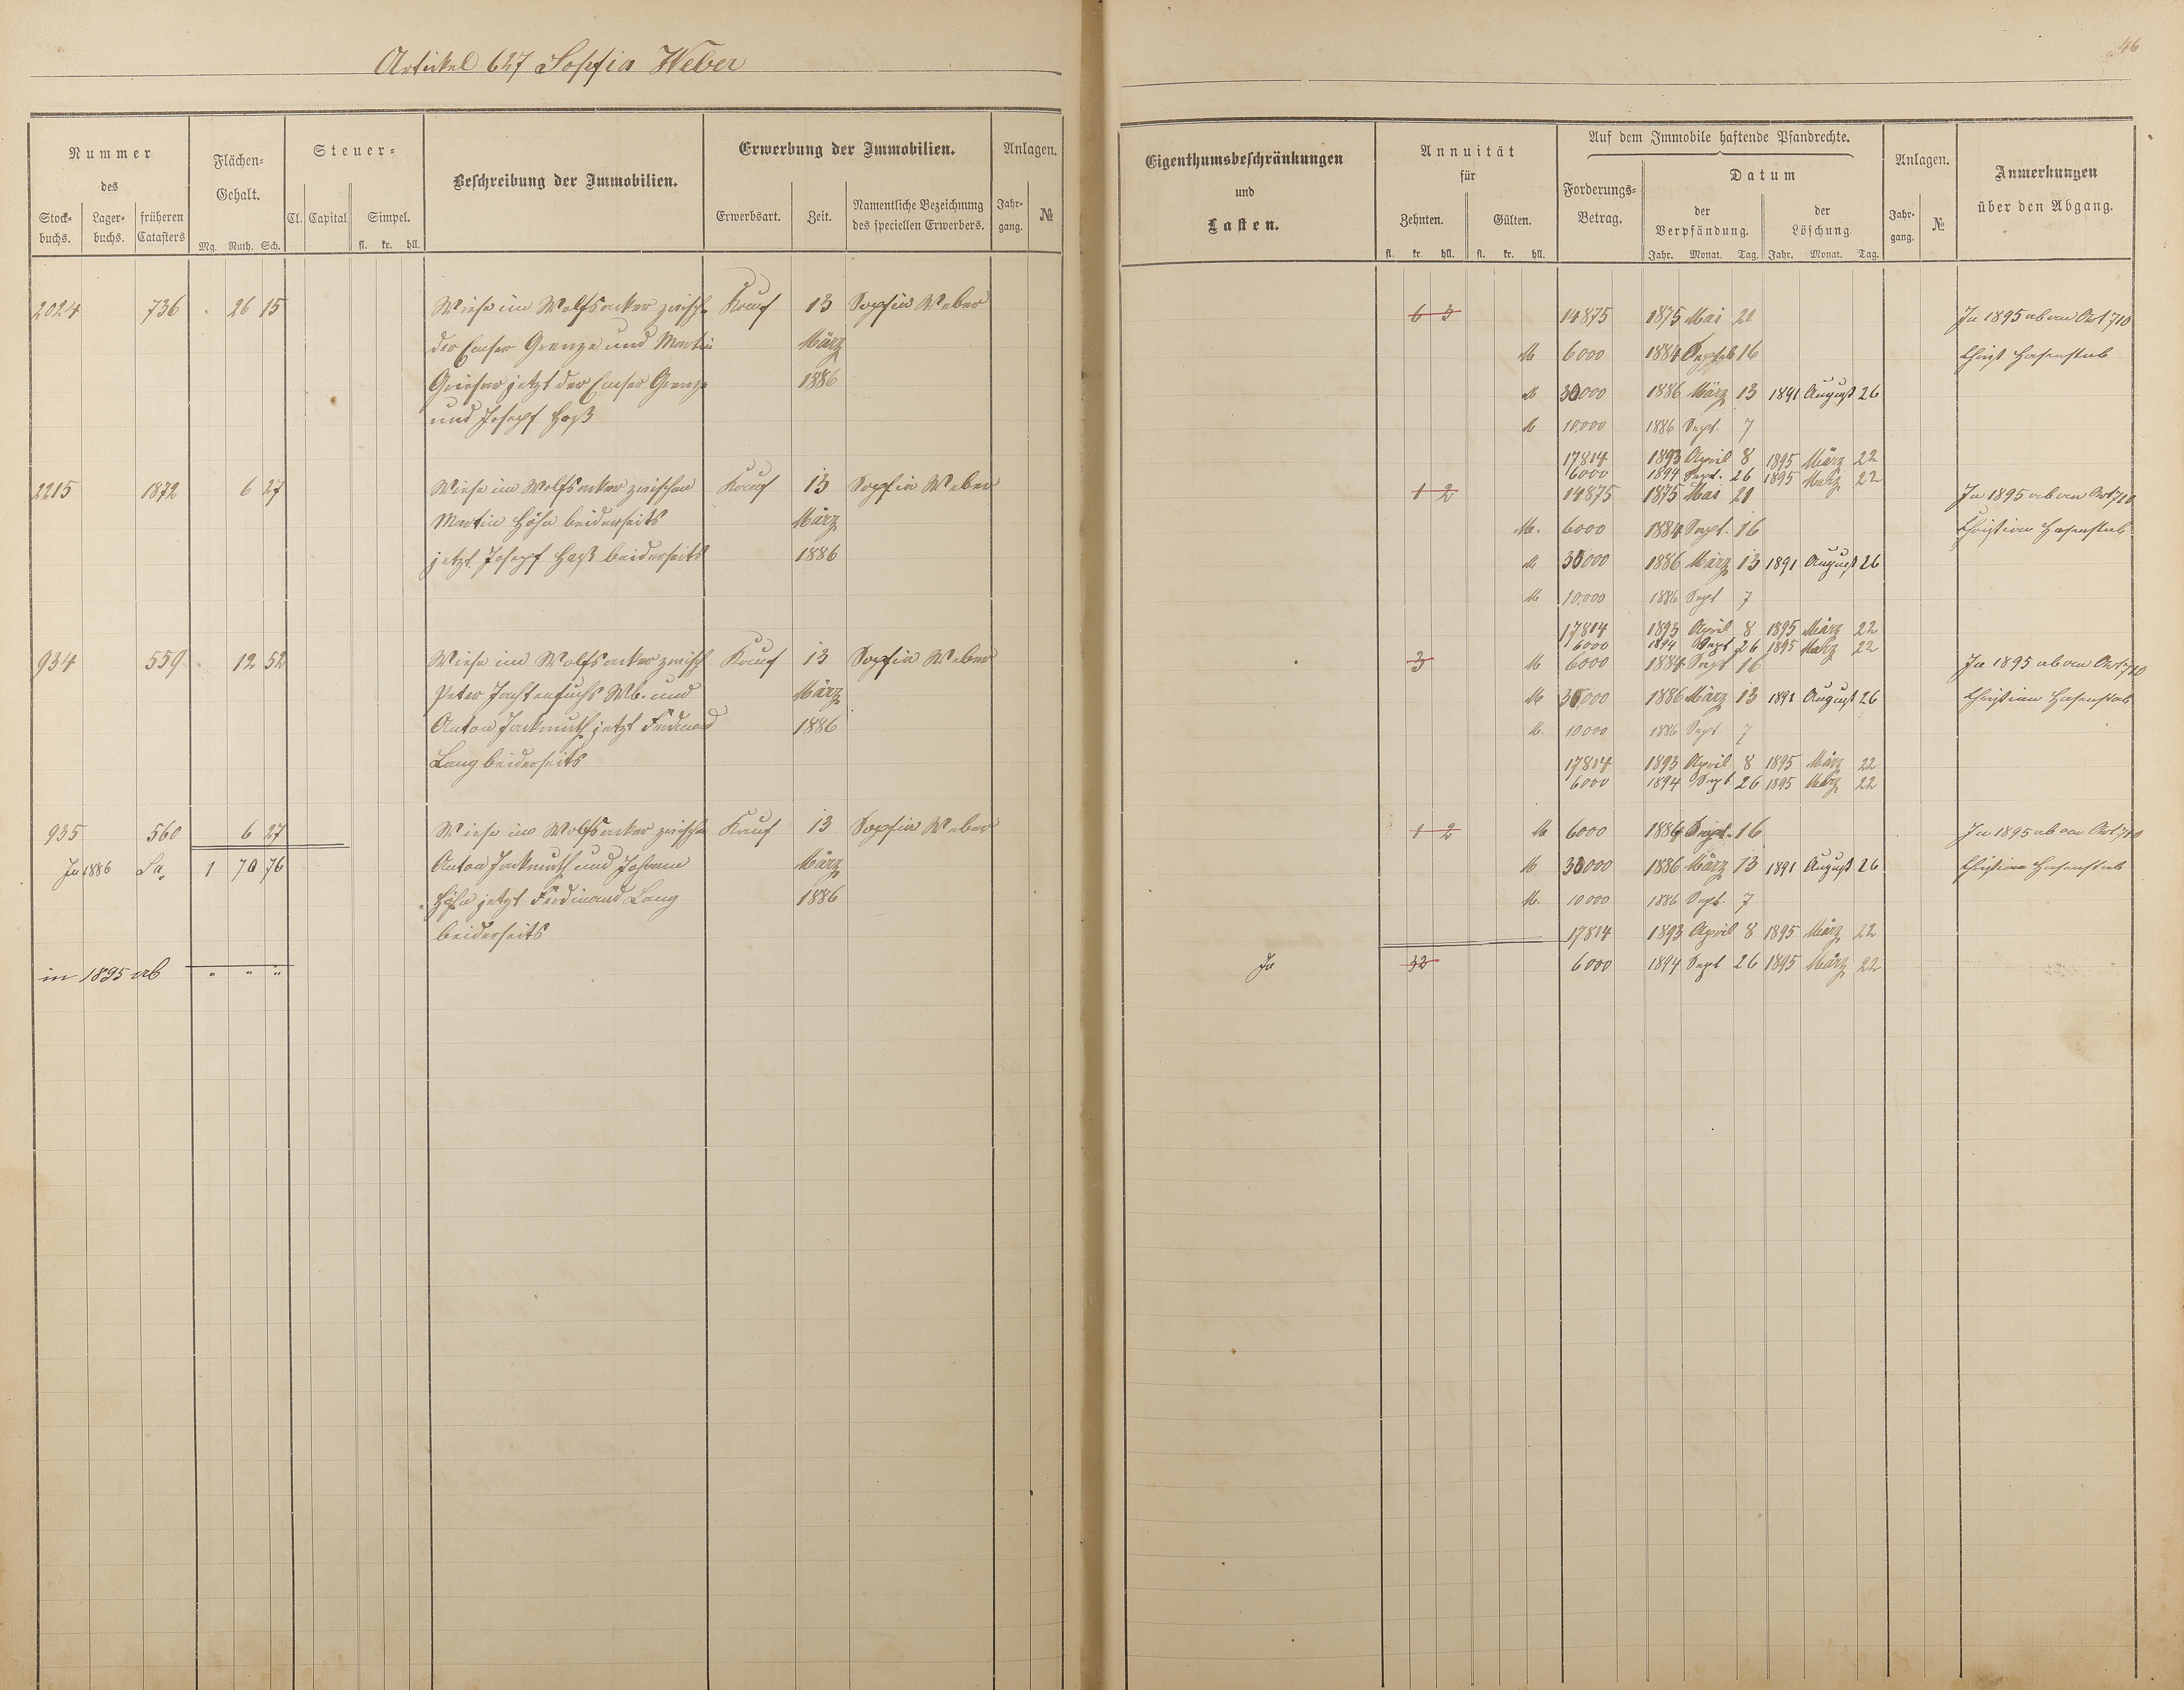 Artickel 627 Sophia Weber
46
Nummer
des
Stock-
buchs.
Lager-
buchs.
früheren
Catasters
Flächen-
Gehalt.
Mg. Ruth. Sch.
Steuer-
Cl. Capital Simpel.
fl. kr. hll.
Beschreibung der Immobilien.
Erwerbung der Immobilien.
Erwerbsart. Zeit.
Namentliche Bezeichnung
des speciellen Erwerbers.
Anlagen.
Jahr-
gang.
№
Eigenthumsbeschränkungen
und
Lasten.
Annuität
für
Zehnten. Gülten.
fl. kr. hll. fl. kr. hll.
Auf dem Immobile haftende Pfandrechte.
Forderungs-
Betrag.
Datum
der
Verpfändung.
der
Löschung.
Jahr. Monat. Tag. Jahr. Monat. Tag.
Anlagen.
Jahr-
gang.
№
Anmerkungen
über den Abgang.
2024 736 26 15 Wiese im Wolfsacker zwisch. Kauf 13 Sophia Weber
der Emser Grenze und Martin März
Grieser jetzt der Emser Grenze 1886
und Joseph Haß
2215 1872 6 27 Wiese im Wolfsacker zwischen Kauf 13 Sophia Weber
Martin Höhn beiderseits März
jetzt Joseph Haß beiderseits 1886
934 559 12 52 Wiese im Wolfsacker zwisch Kauf 13 Sophia Weber
Peter Wb. und März
Anton Jackmuth jetzt Ferdinand 1886
Lang beiderseits
935 560 6 27 Wiese im Wolfsacker zwischen Kauf 13 Sophia Weber
In 1886 Sa. 1 70 76 Anton Jackmuth und Johann März
Höhn jetzt Ferdinand Lang 1886
beiderseits
in 1895 ab " " "
6 3 14875 1875 Mai 21 In 1895 ab am Art 710
M 6000 1884 Septeb 16 Christ Hasenstab
M 30000 1886 März 13 1891 August 26
M 10.000 1886 Sept. 7
17814 1893 April 8 1895 März 22
6000 1894 Sept. 26 1895 März 22
1 2 14875 1875 Mai 21 In 1895 ab am Art 710
M. 6000 1884 Sept. 16 Christian Hasenstab
M 30000 1886 März 13 1891 August 26
M 10.000 1886 Sept 7
17814 1893 April 8 1895 März 22
6000 1894 Sept 26 1895 März 22
3 M 6000 1884 Sept 16 In 1895 ab am Art 710
M 30000 1886 März 13 1891 August 26 Christian Hasenstab
M. 10000 1886 Sept. 7
17814 1893 April 8 1895 März 22
6000 1894 Sept 26 1895 März 22
1 2 M 6000 1884 Sept. 16 In 1895 ab am Art 710
M 30000 1886 März 13 1891 August 26 Christian Hasenstab
M. 10000 1886 Sept. 7
17814 1893 April 8 1895 März 22
Sa 32 6000 1894 Sept 26 1895 März 22